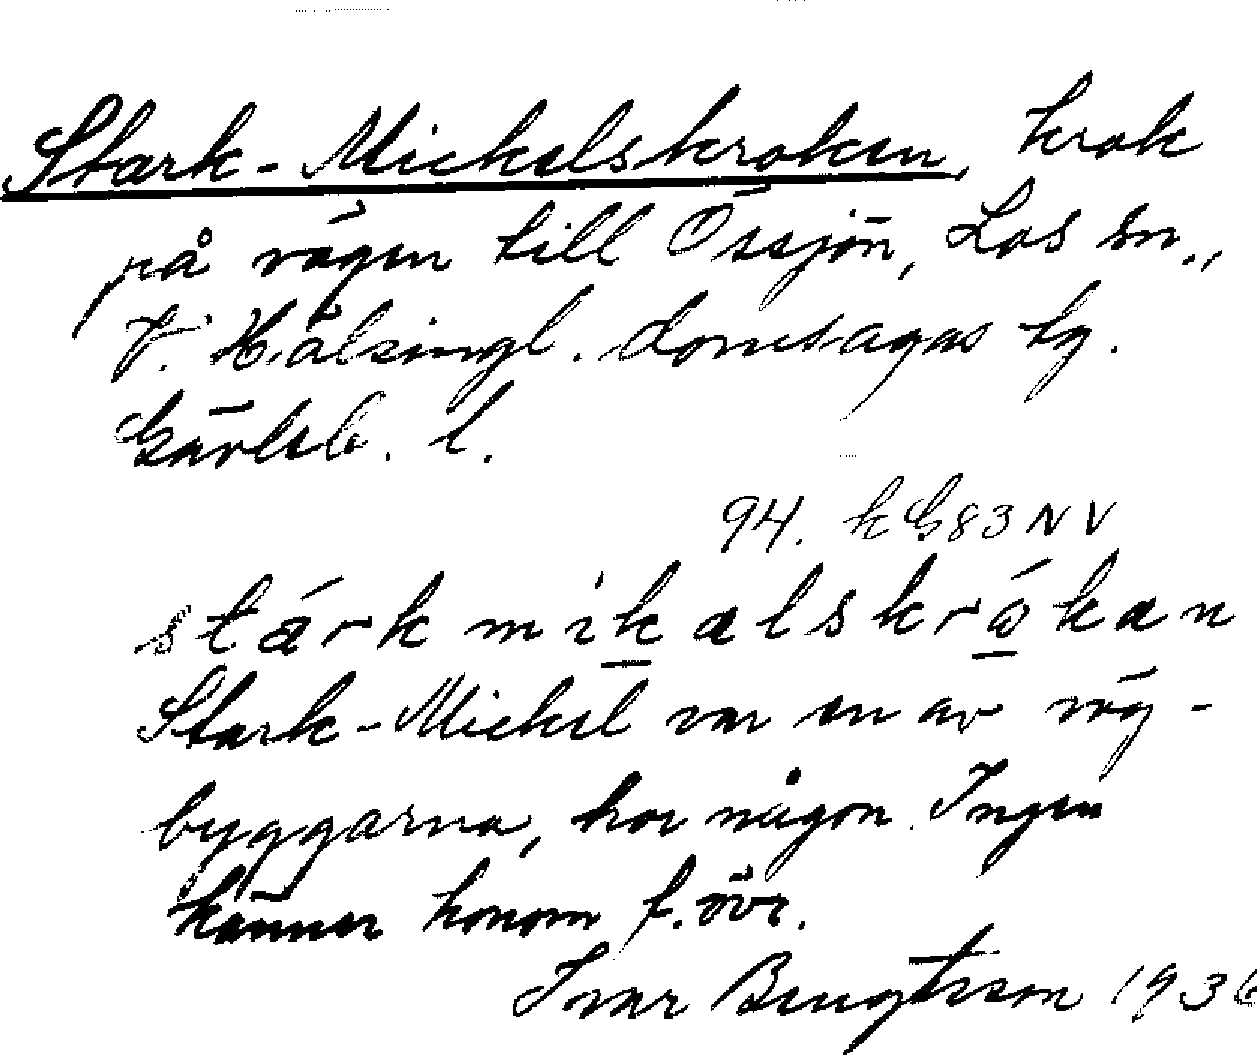 Stark-Mickelskroken, krok
på vägen till Össjön, Los sn.,
V. Hälsingl. domsagas tg.
Gävleb. l.
94. k G83NV
stárk mikalskrókan
Stark-Mickel var en av väg-
byggarna, tror någon. Ingen
känner honom f. övr.
Ivar Bengtsson 1936